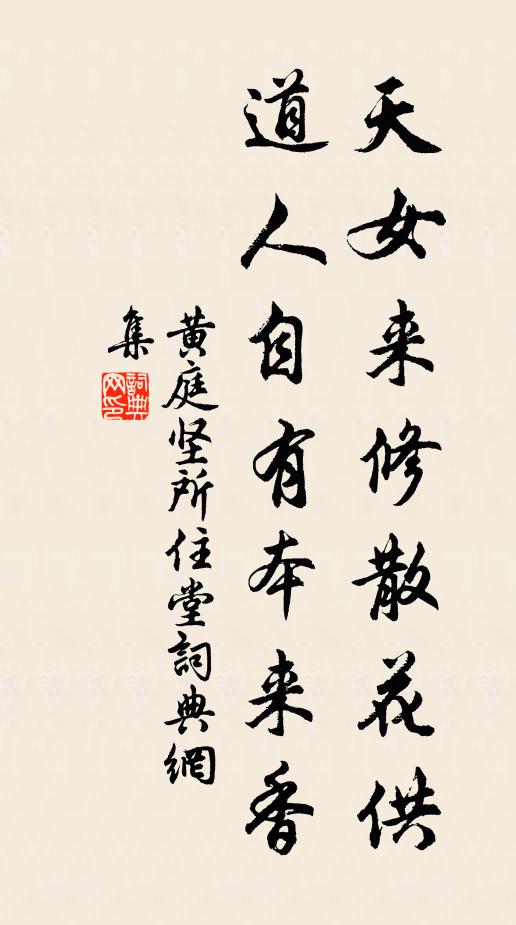 天女来修散花供
道人自有本来香
黄庭坚所住堂詞典網
集
詞典
网印